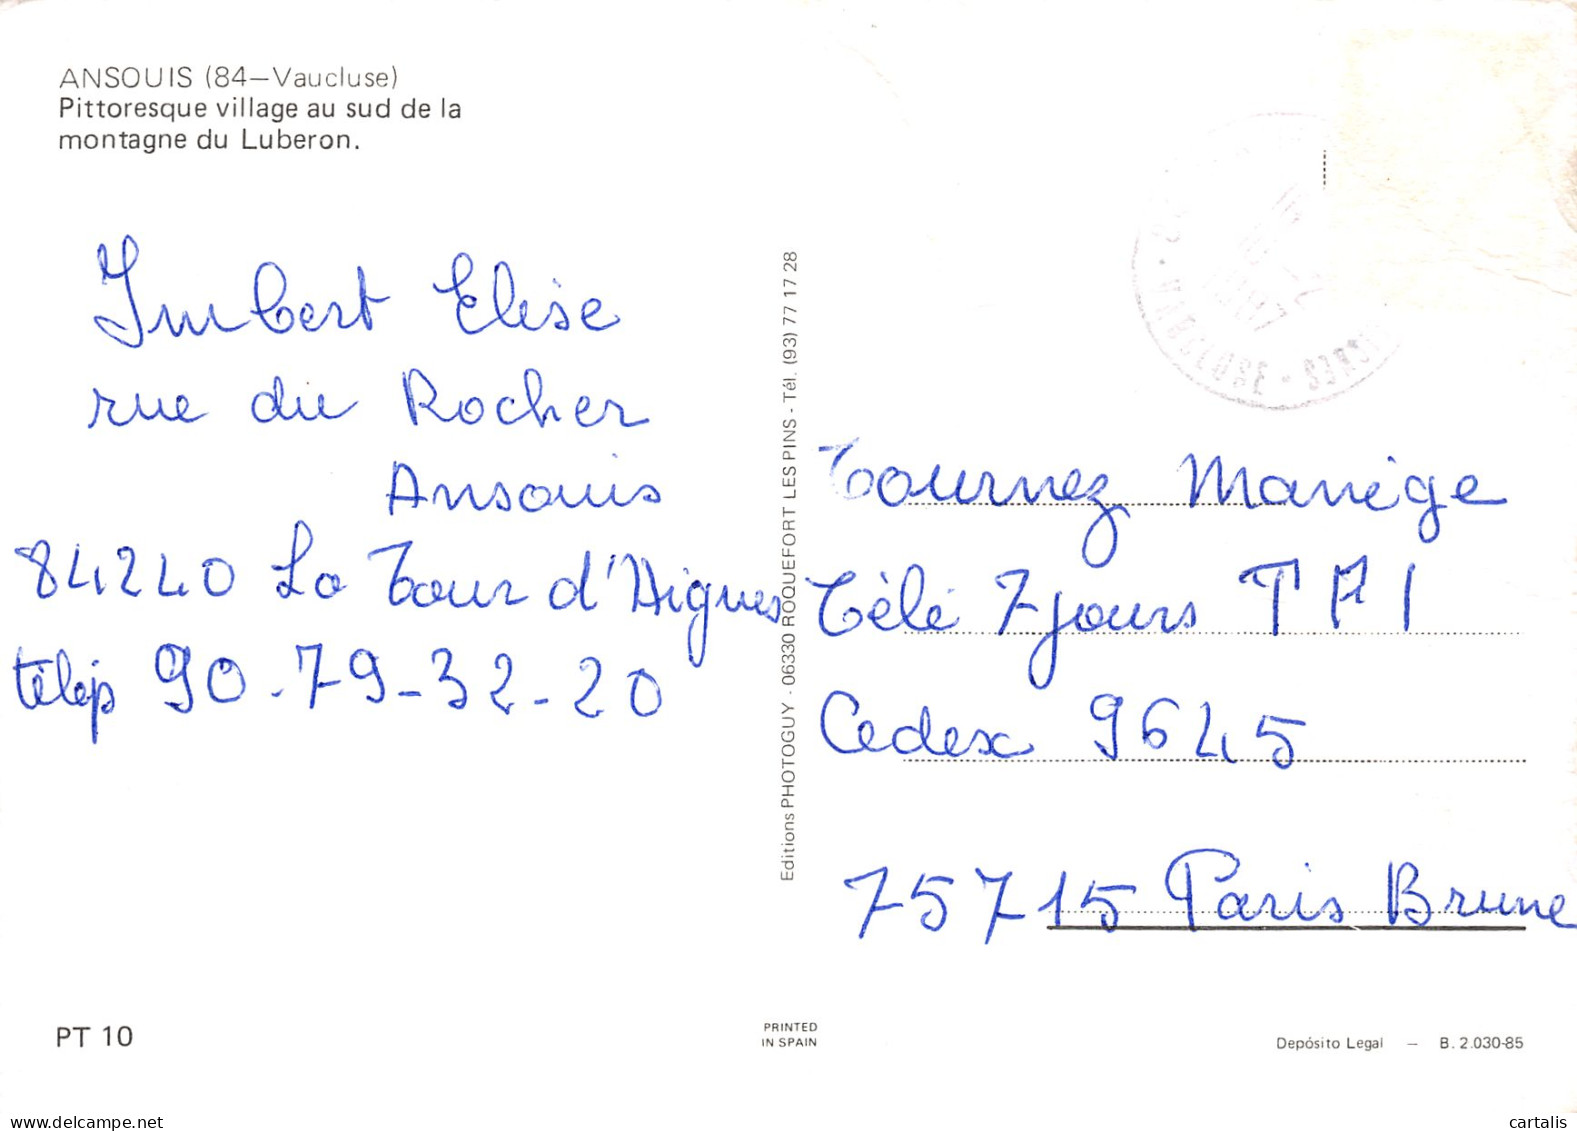 ANSOUIS (84—Vaucluse)
Pittoresque village au sud de la
montagne du Luberon.
Imbert Elise
rue du Rocher
Ansouis
84240 La Tour d'Aigues
télép 90-79-32-20
Editions PHOTOGUY - 06330 ROQUEFORT LES PINS - Tél. (93) 77 17 28
VAUCLUSE
Tournez Manège
Télé 7 jours TF1
Cedex 9645
75715 Paris Brune
PT 10
PRINTED
IN SPAIN
Depósito Legal — B. 2.030-85
cartalis